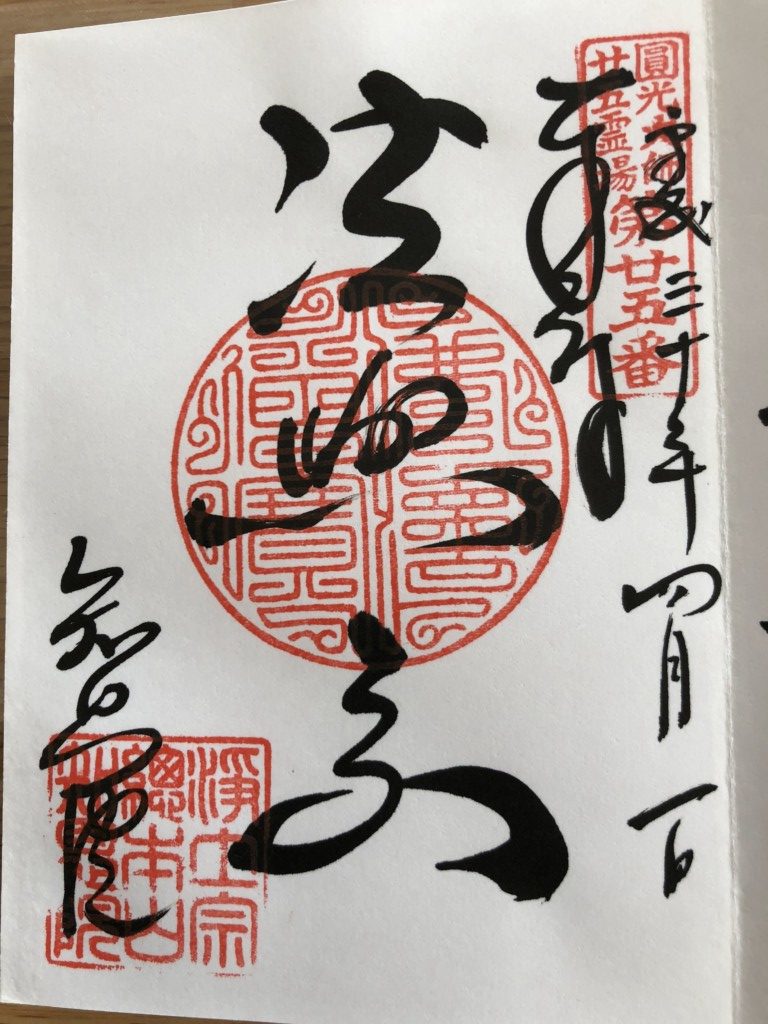 圓光大師
廿五霊場
第廿五番
平成三十年四月一日
奉拝
法然上人
知恩院
淨土宗
總本山
知恩院